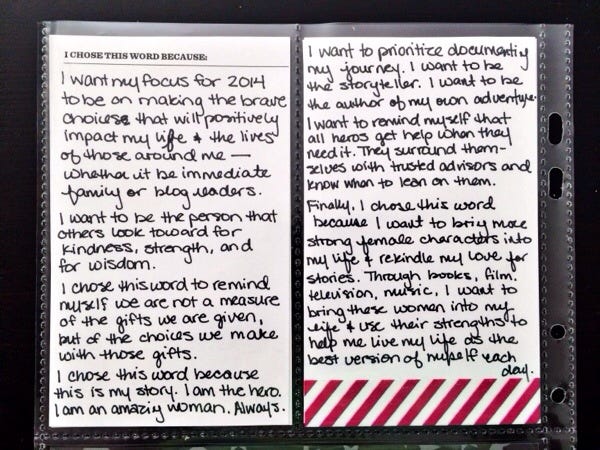 I CHOSE THIS WORD BECAUSE:
I want my focus for 2014
to be on making the brave
choices that will positively
impact my life & the lives
of those around me —
whether it be immediate
family or blog readers.
I want to be the person that
others look toward for
kindness, strength, and
for wisdom.
I chose this word to remind
myself we are not a measure
of the gifts we are given,
but of the choices we make
with those gifts.
I chose this word because
this is my story. I am the hero.
I am an amazing woman. Always.
I want to prioritize documenting
my journey. I want to be
the storyteller. I want to be
the author of my own adventure.
I want to remind myself that
all heros get help when they
need it. They surround them-
selves with trusted advisors and
know when to lean on them.
Finally, I chose this word
because I want to bring more
strong female characters into
my life & rekindle my love for
stories. Through books, film,
television, music, I want to
bring these women into my
life & use their strengths to
help me live my life as the
best version of myself each
day.